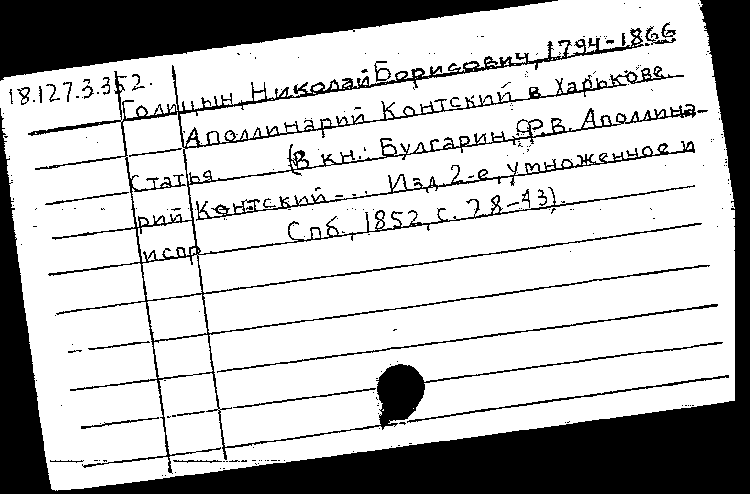 18.127.3.352.
Голицын, Николай Борисович, 1794-1866
Аполлинарий Контский в Харькове.
Статья. (В кн.: Булгарин, Ф.В. Аполлина-
рий Контский... Изд. 2-е, умноженное и
испр. Спб., 1852, с. 28-43).